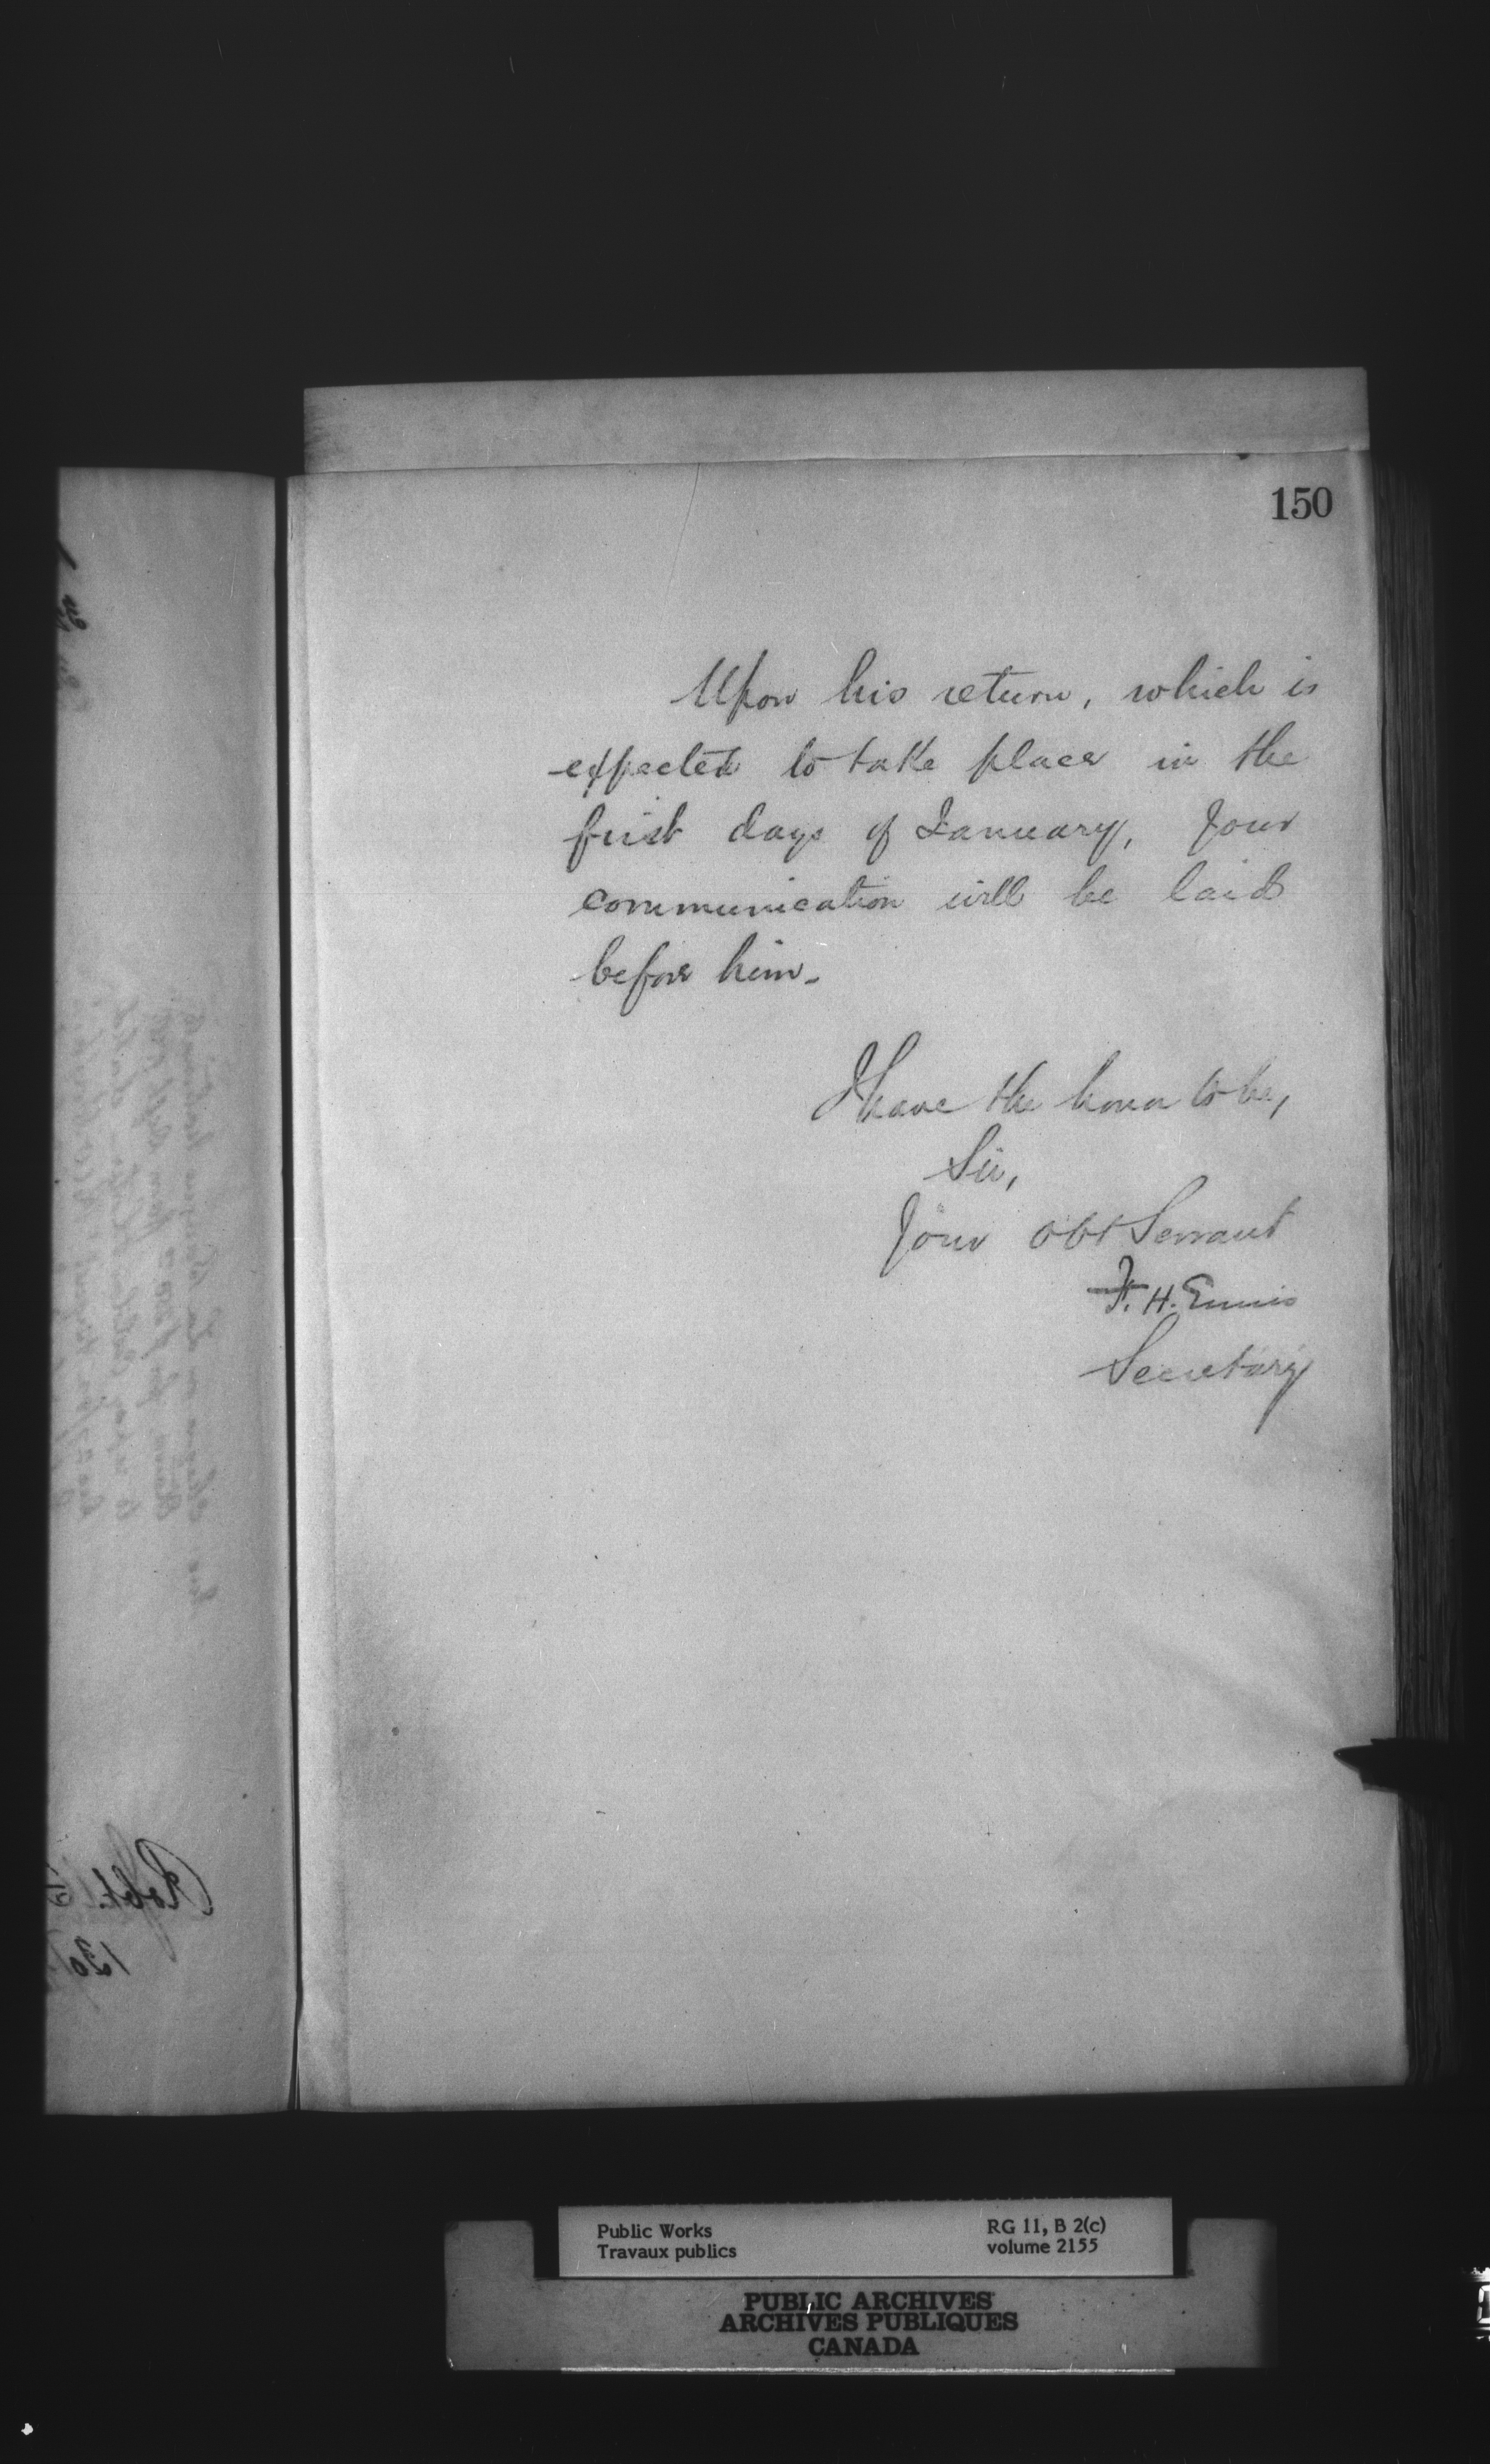 150
Upon his return, which is
expected to take place in the
first days of January, your
communication will be laid
before him.
I have the honor to be,
Sir,
Your obt Servant
F. H. Ennis
Secretary
Robt.
120
Public Works
Travaux publics
RG 11, B 2(c)
volume 2155
PUBLIC ARCHIVES
ARCHIVES PUBLIQUES
CANADA